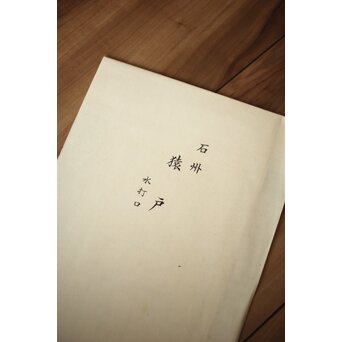 石州
猿戸
水打口